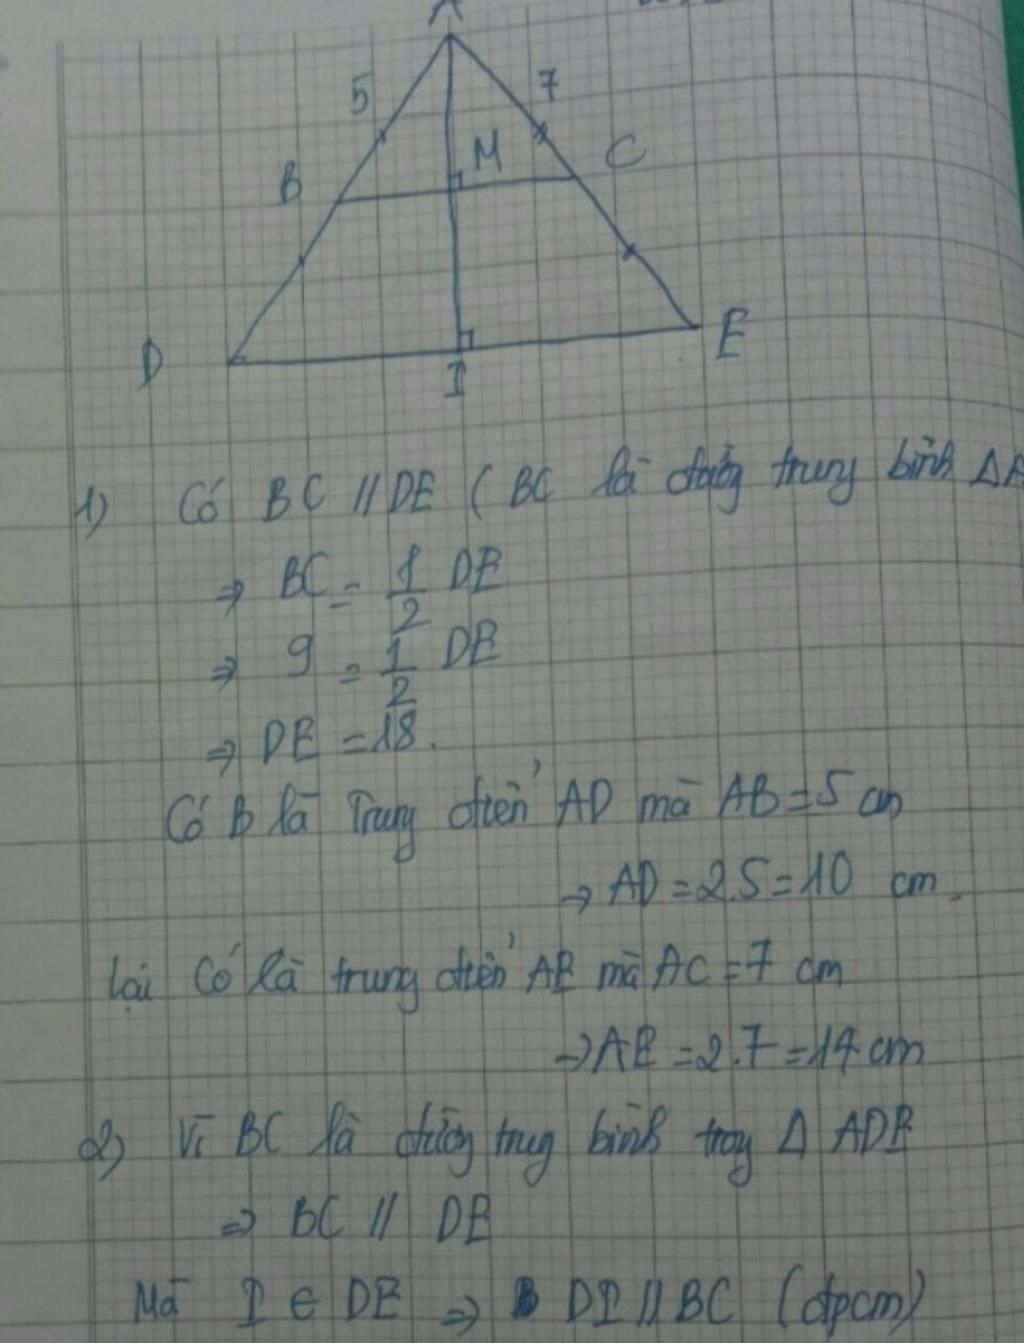 A
5
7
B
M
C
D
I
E
1) Có BC // DE ( BC là đường trung bình Δ A
⇒ BC = 1/2 DE
⇒ 9 = 1/2 DE
⇒ DE = 18.
Có B là Trung điểm AD mà AB = 5 cm
→ AD = 2.5 = 10 cm.
Lại Có là trung điểm AE mà AC = 7 cm
→ AE = 2.7 = 14 cm
2) Vì BC là đường trung bình trong Δ ADE
⇒ BC // DE
Mà I ∈ DE ⇒ DI // BC (đpcm)